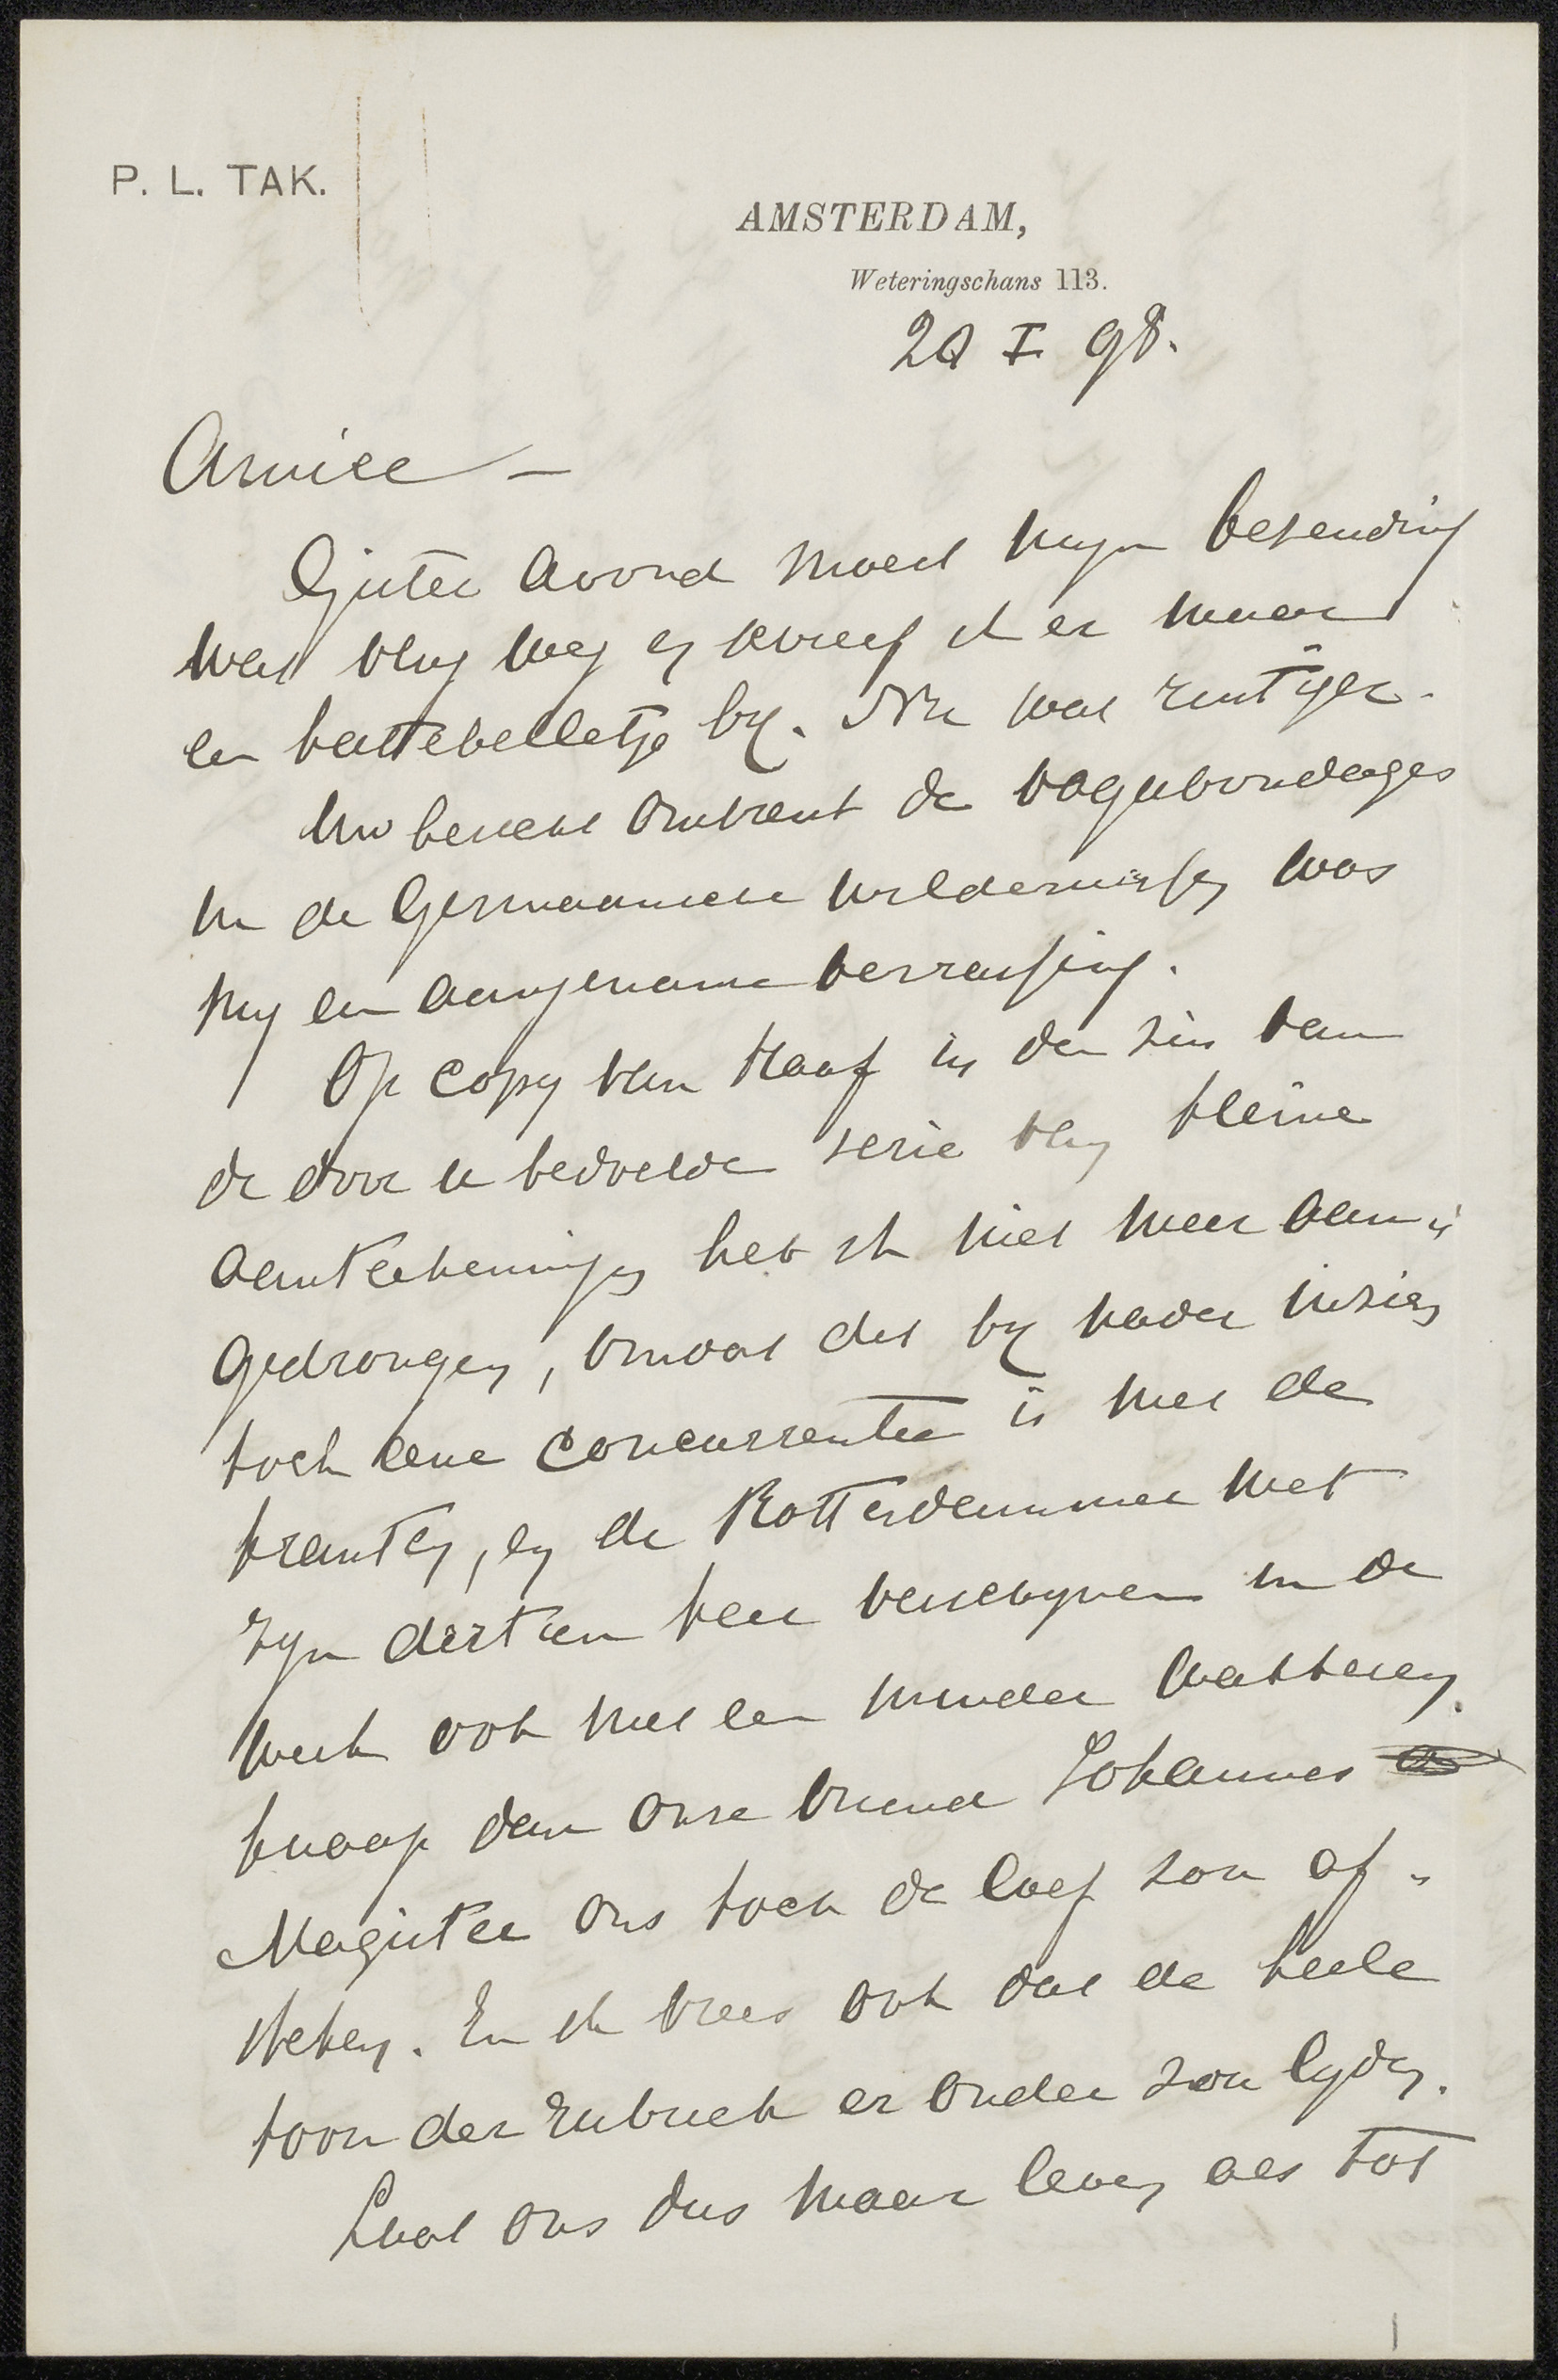 P. L. TAK.
AMSTERDAM,
Weteringschans 113.
I 98.
Amice —
Gisteren avond moest mijn bezending
wat vlug weg en schreef ik er maar
een kattebelletje bij. Nu wat rustiger.
Uw bericht omtrent de vagabondages
in de Germaansche wildernissen was
mij een aangename verrassing.
Op copy van Haaf in den zin van
de door u bedoelde serie vlug kleine
aanteekeningen heb ik niet meer aan-
gedrongen, omdat dit bij nader inzien
toch eene concurrentie is met de
kranten, en de Rotterdammer met
zijn dertien keer verschijnen in de
week ook met een minder wakkeren
knaap dan onze vriend Johannes
Magister ons toch de loef zou af-
steken. En ik vrees ook dat de heele
toon der rubriek er onder zou lijden.
Laat ons dus maar leven als tot